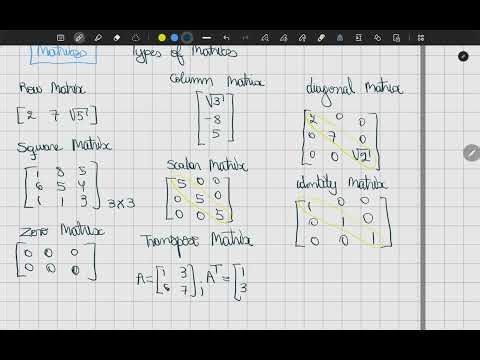 Matrices
Types of Matrices
Row Matrix
[2 7 √5]
Column Matrix
[√3
-8
5]
diagonal Matrix
[2 0 0
0 7 0
0 0 √2]
Square Matrix
[1 8 5
6 5 4
1 1 3] 3×3
Scalar Matrix
[5 0 0
0 5 0
0 0 5]
identity Matrix
[1 0 0
0 1 0
0 0 1]
Zero Matrix
[0 0 0
0 0 0]
Transpose Matrix
A=[1 3
6 7], Aᵀ=[1
3